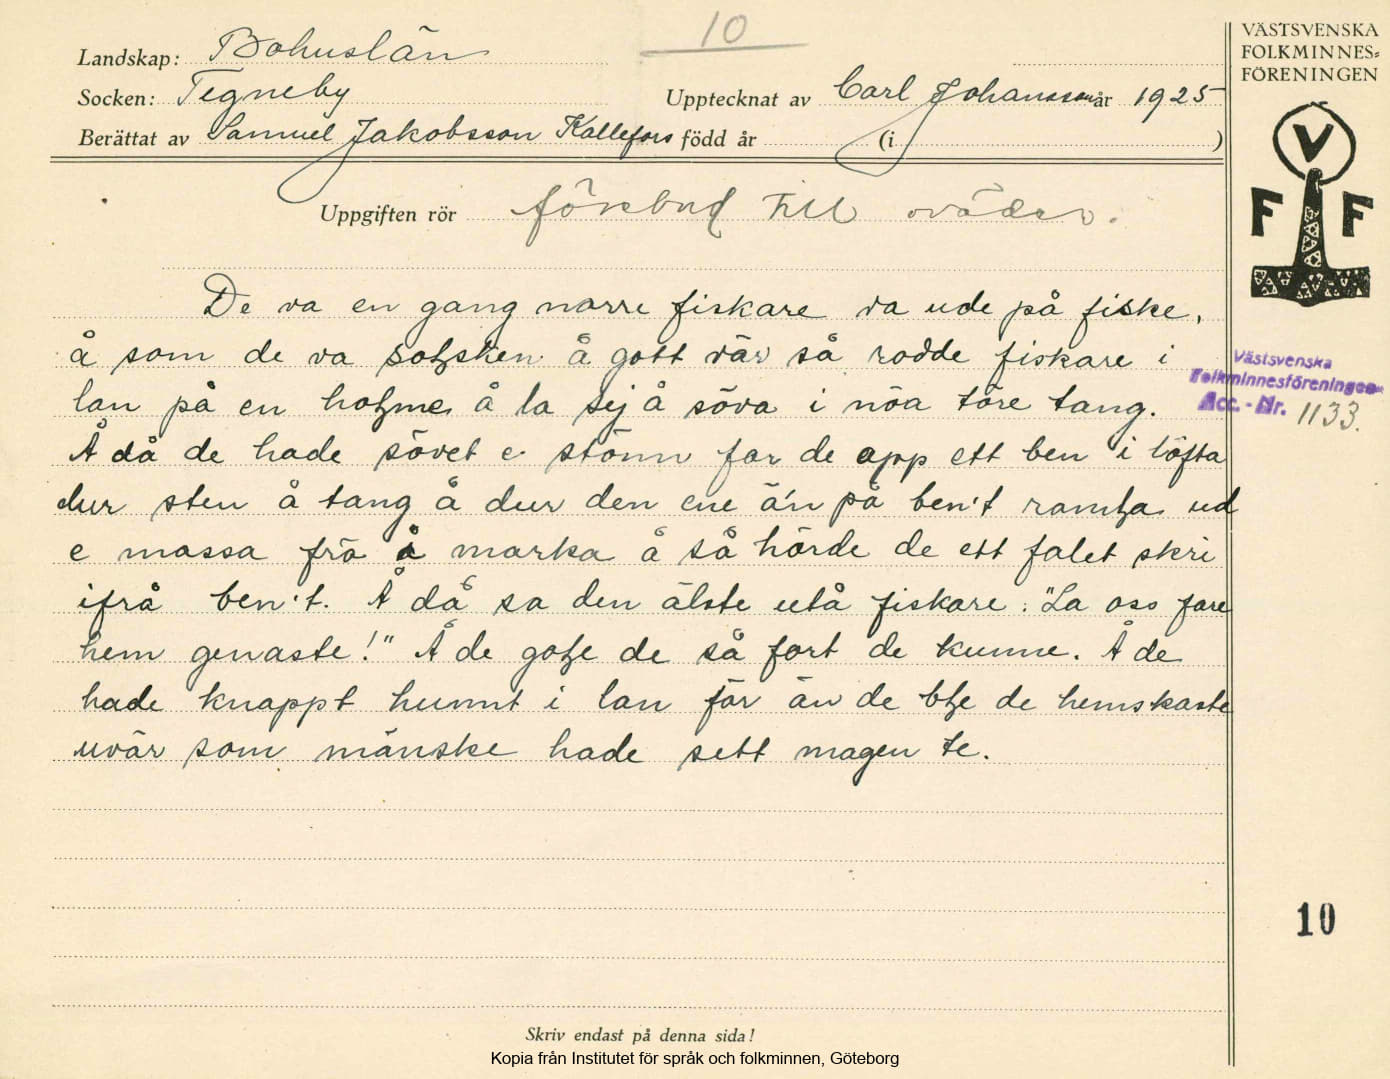 10
VÄSTSVENSKA
FOLKMINNES=
FÖRENINGEN
Landskap: Bohuslän
Socken: Tegneby
Upptecknat av Carl Johansson år 1925
Berättat av Samuel Jakobsson Kallefors född år (i )
V
F F
Uppgiften rör förebud till oväder.
De va en gang norre fiskare va ude på fiske,
å som de va soꜧsken å gott vär så rodde fiskare i
lan på en hoꜧme å la sej å söva i nöa töre tang.
Å då de hade sövet e stönn far de opp ett ben i löfta
dur sten å tang å dur den ene än på ben't ramꜧa ud
e massa frö å marka å så hörde de ett falet skri
ifrå ben't. Å då sa den älste utå fiskare: "La oss fare
hem genaste!" Å de goꜧe de så fort de kunne. Å de
hade knappt hunnt i lan för än de bꜧe de hemskaste
uvär som mänske hade sett magen te.
Västsvenska
Folkminnesföreningen
Acc.-Nr. 1133.
10
Skriv endast på denna sida!
Kopia från Institutet för språk och folkminnen, Göteborg